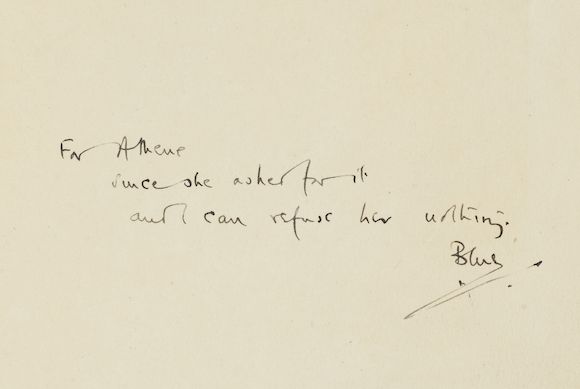 For Athene
since she asked for it
and I can refuse her nothing.
Blue